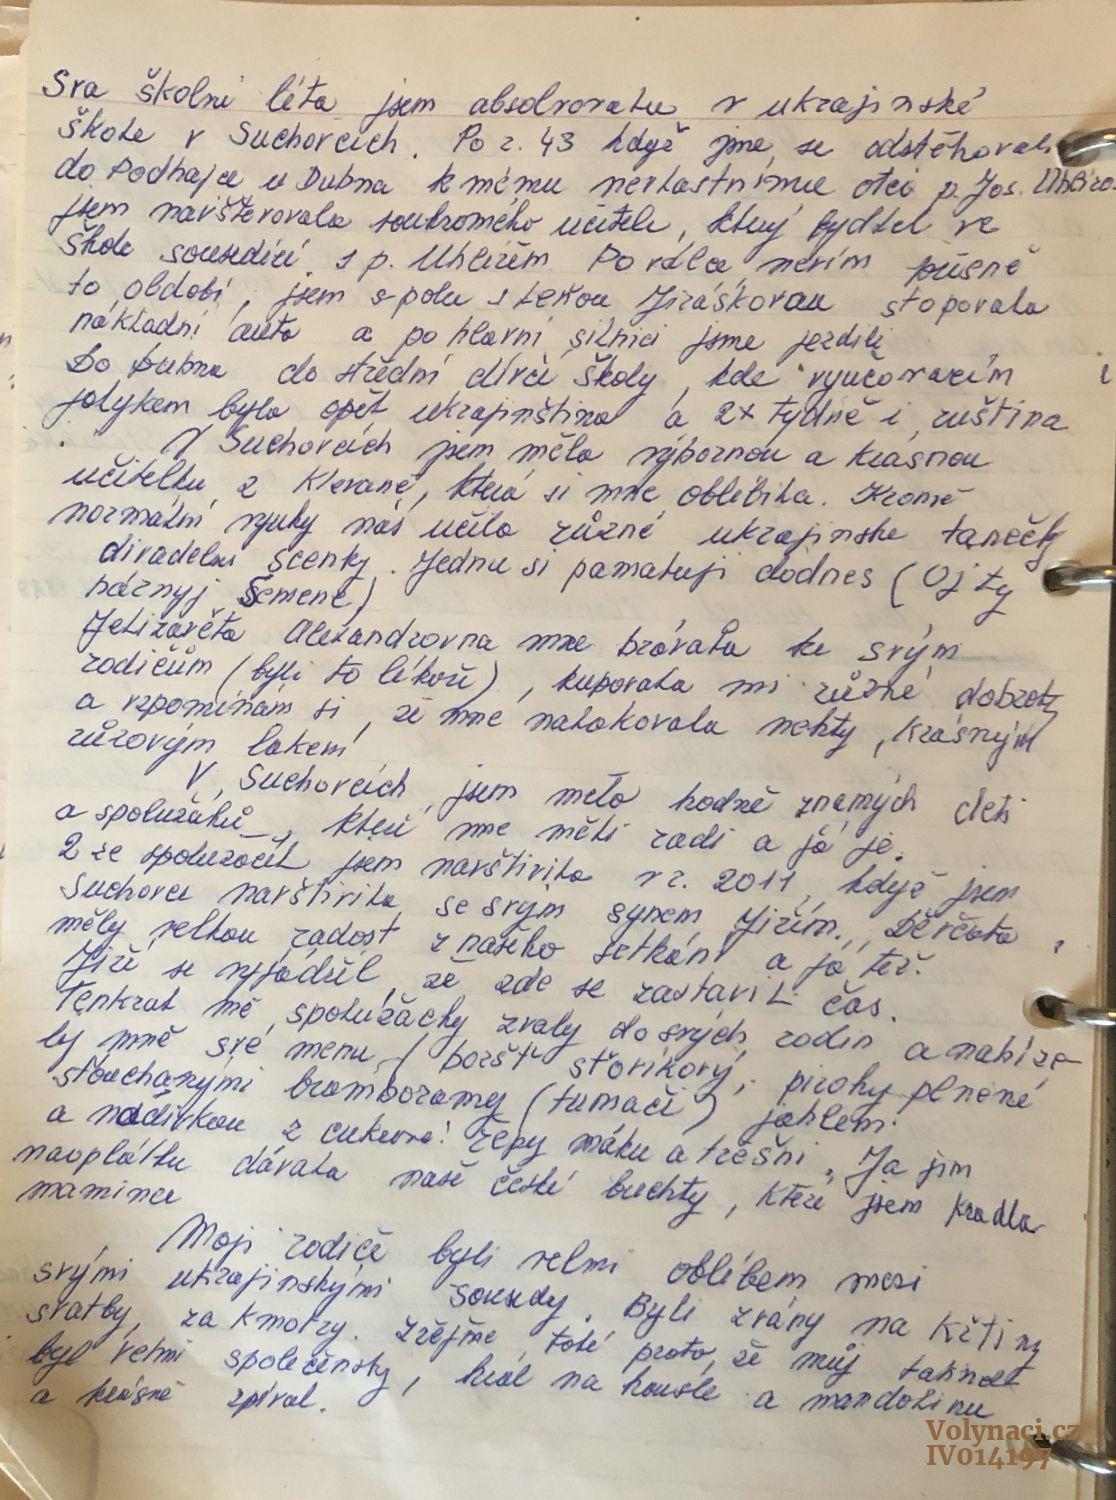 Sva školní léta jsem absolvovala v ukrajinské
škole v Suchovcích. Po r. 43 když jsme se odstěhovali
do Podhajce u Dubna k mému nevlastnímu otci p. Jos. Uhlířo
jsem navštěvovala soukromého učitele, který bydlel ve
škole sousedící s p. Uhlířem Po válce nevím přesně
to období, jsem spolu s Lenkou Jiráškovou stopovala
nákladní auta a po hlavní silnici jsme jezdili
Do Dubna do střední dívčí školy, kde vyučovacím
jazykem byla opět ukrajinština a 2x týdně i ruština
V Suchovcích jsem měla výbornou a krásnou
učitelku z Klevaně, která si mne oblíbila. Kromě
normální výuky nás učila různé ukrajinske tanečky
divadelní scenky. Jednu si pamatuji dodnes (Oj ty
hárnyj Semene)
Jelizavěta Alexandrovna mne brávala ke svým
rodičům (byli to lékaři), kupovala mi různé dobroty
a vzpomínám si, že mne nalakovala nehty, krásným
růžovým lakem
V Suchovcích jsem měla hodně známých dětí
a spolužáků, kteří mne měli rádi a já je.
2 ze spolužaček jsem navštívila v r. 2011, když jsem
Suchovce navštívila se svým synem Jiřím. Děvčata
měly velkou radost z našeho setkání a já též.
Jiří se vyjádřil, že zde se zastavil čas.
Tenkrát mě spolužačky zvaly do svých rodin a nabíze-
ly mně své menu (boršť šťovíkový, pirohy plněné
šťouchanými bramboramy (tumači) jahlemi
a nádivkou z cukrové řepy máku a třešni. Ja jim
naoplátku dávala naše české buchty, které jsem kradla
mamince
Moji rodiče byli velmi oblíbeni mezi
svými ukrajinskými sousedy. Byli zvány na křtiny
svatby, za kmotry. Zřejmě také proto, že můj tatínek
byl velmi společenský, hrál na housle a mandolinu
a krásně zpíval.
Volynaci.cz
IV014197